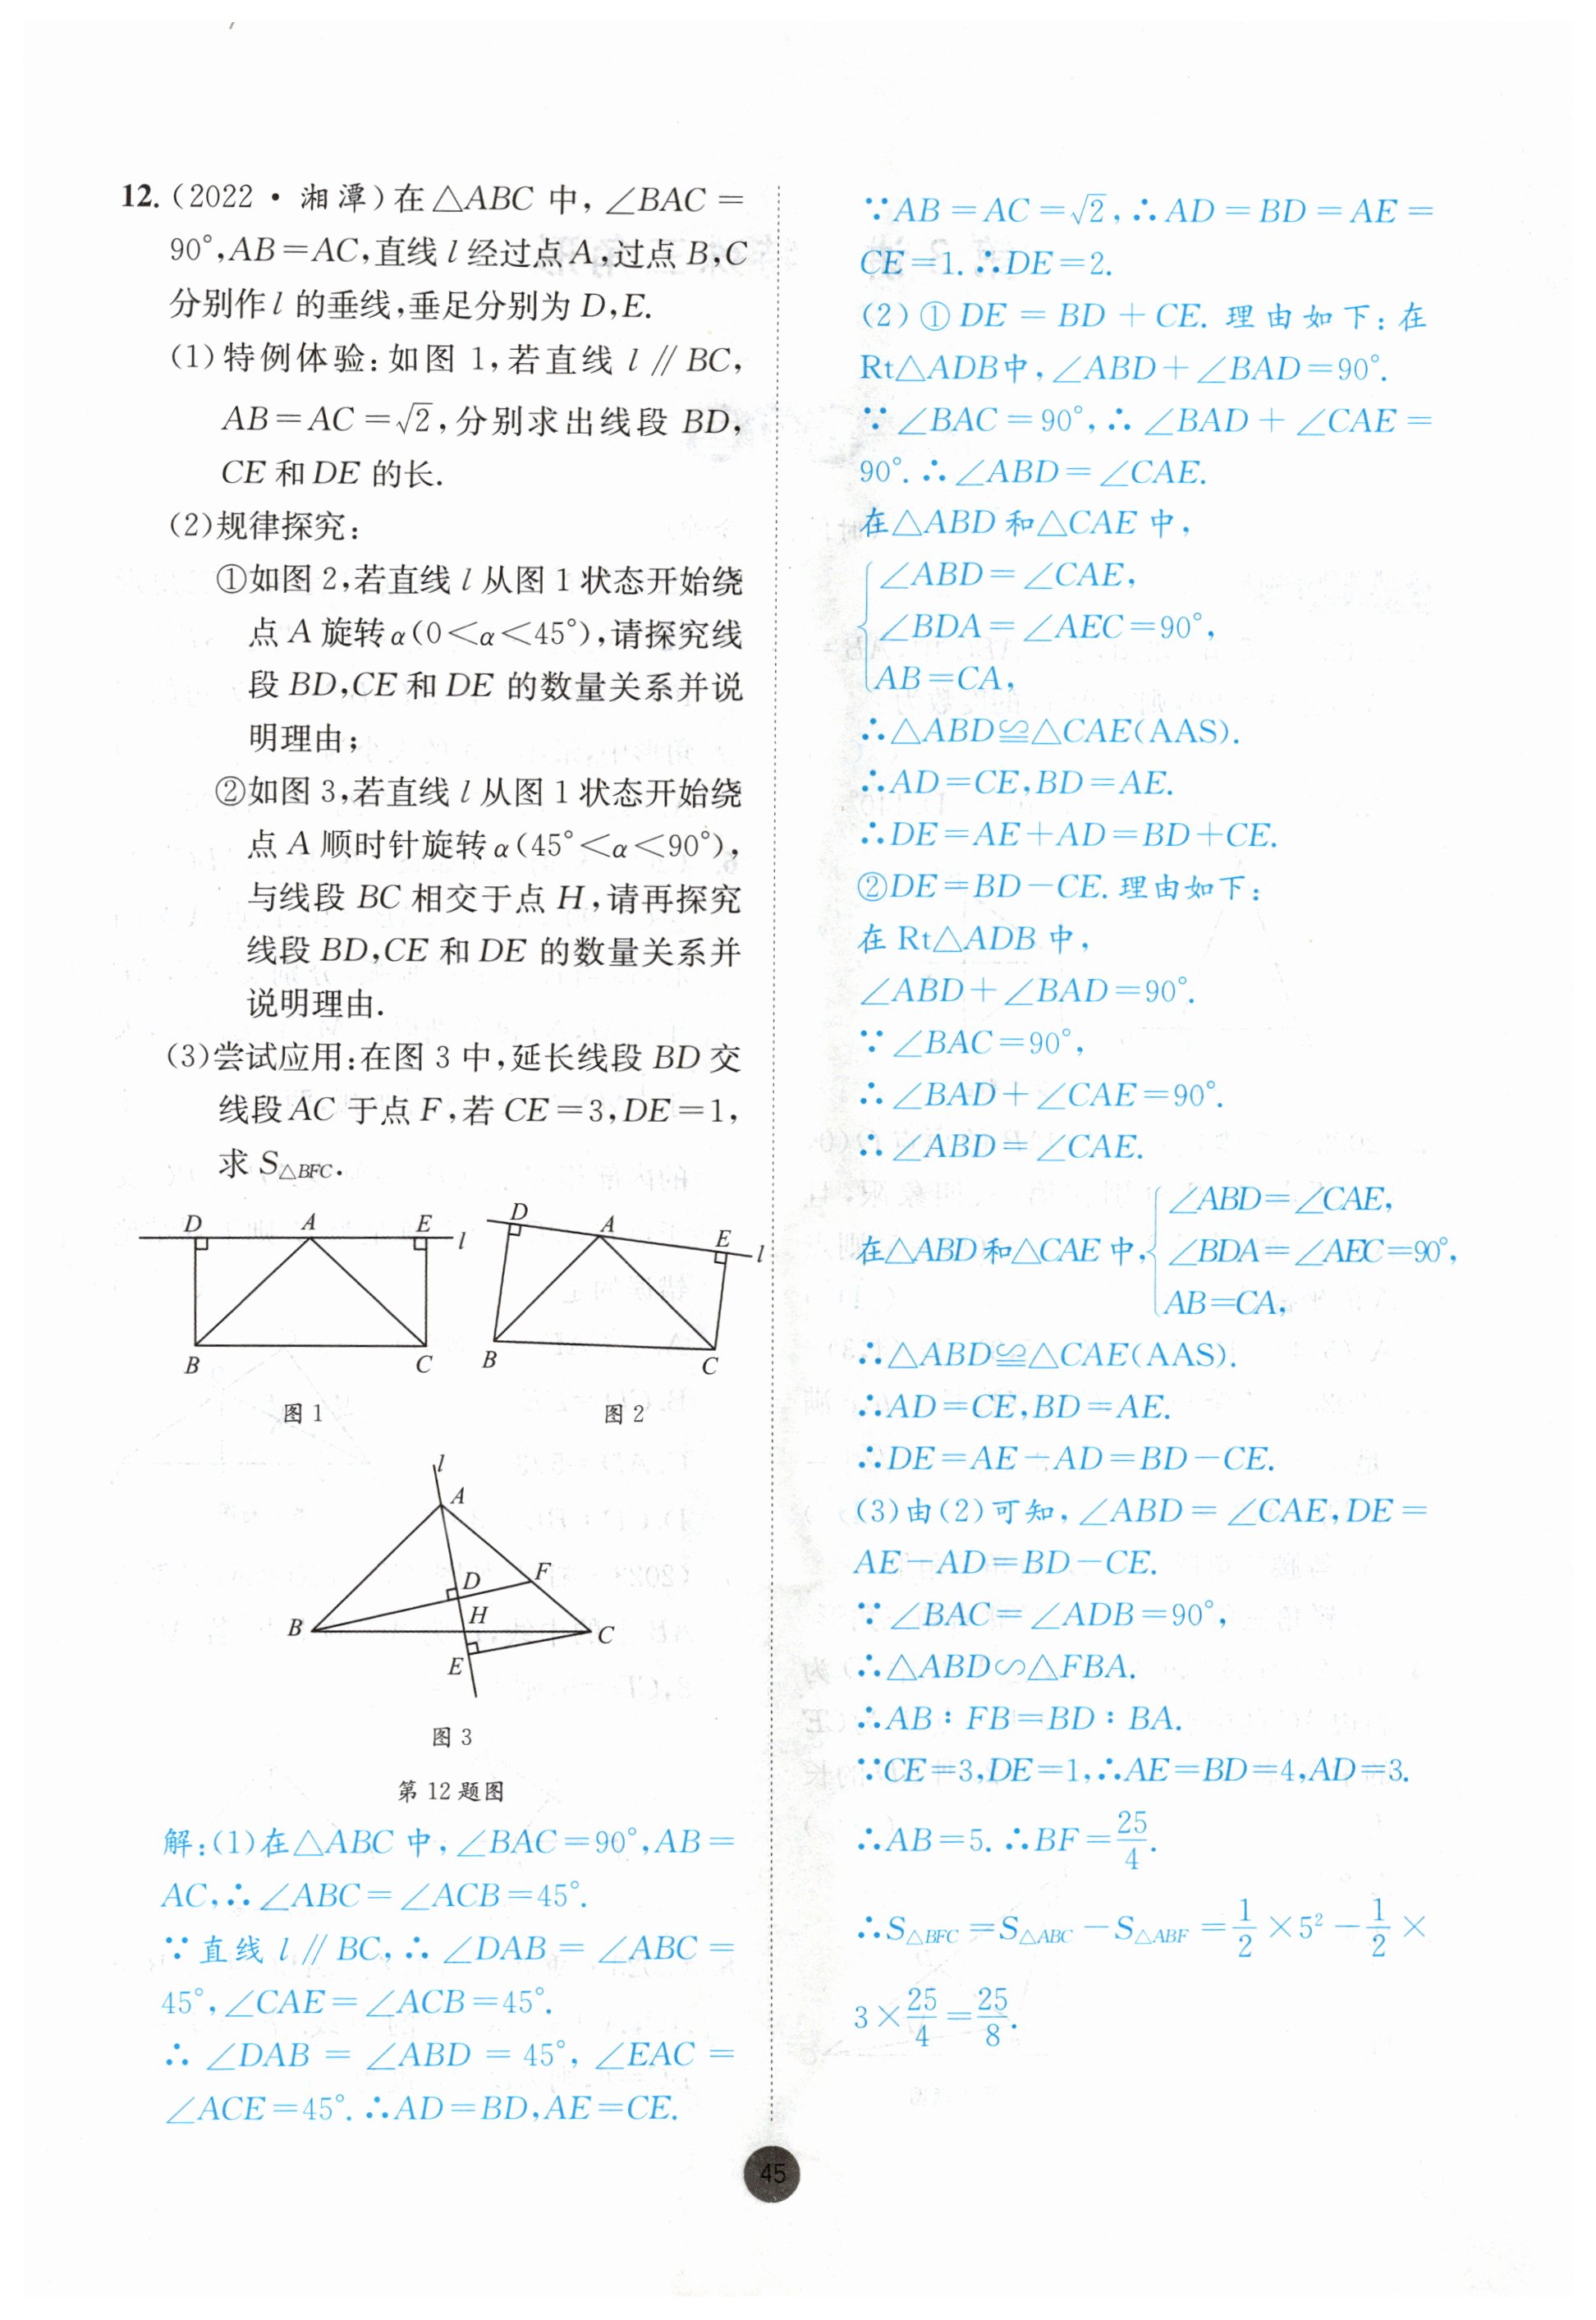 12.(2022·湘潭)在△ABC 中,∠BAC=
90°,AB=AC,直线 l 经过点A,过点 B,C
分别作 l 的垂线,垂足分别为 D,E.
(1)特例体验:如图 1,若直线 l∥BC,
AB=AC=√2,分别求出线段 BD,
CE 和 DE 的长.
(2)规律探究:
①如图 2,若直线 l 从图 1 状态开始绕
点 A 旋转 α(0<α<45°),请探究线
段 BD,CE 和 DE 的数量关系并说
明理由;
②如图 3,若直线 l 从图 1 状态开始绕
点 A 顺时针旋转 α(45°<α<90°),
与线段 BC 相交于点 H,请再探究
线段 BD,CE 和 DE 的数量关系并
说明理由.
(3)尝试应用:在图 3 中,延长线段 BD 交
线段 AC 于点 F,若 CE=3,DE=1,
求 S△BFC.
D A E l
B C
图 1
D A E l
B C
图 2
l
A
D F
B H C
E
图 3
第 12 题图
解:(1)在△ABC 中,∠BAC=90°,AB=
AC,∴∠ABC=∠ACB=45°.
∵直线 l∥BC,∴∠DAB=∠ABC=
45°,∠CAE=∠ACB=45°.
∴∠DAB=∠ABD=45°,∠EAC=
∠ACE=45°.∴AD=BD,AE=CE.
∵AB=AC=√2,∴AD=BD=AE=
CE=1.∴DE=2.
(2)①DE=BD+CE.理由如下:在
Rt△ADB中,∠ABD+∠BAD=90°.
∵∠BAC=90°,∴∠BAD+∠CAE=
90°.∴∠ABD=∠CAE.
在△ABD 和△CAE 中,
∠ABD=∠CAE,
∠BDA=∠AEC=90°,
AB=CA,
∴△ABD≌△CAE(AAS).
∴AD=CE,BD=AE.
∴DE=AE+AD=BD+CE.
②DE=BD-CE.理由如下:
在 Rt△ADB 中,
∠ABD+∠BAD=90°.
∵∠BAC=90°,
∴∠BAD+∠CAE=90°.
∴∠ABD=∠CAE.
在△ABD 和△CAE 中,{∠ABD=∠CAE,
∠BDA=∠AEC=90°,
AB=CA,
∴△ABD≌△CAE(AAS).
∴AD=CE,BD=AE.
∴DE=AE-AD=BD-CE.
(3)由(2)可知,∠ABD=∠CAE,DE=
AE-AD=BD-CE.
∵∠BAC=∠ADB=90°,
∴△ABD∽△FBA.
∴AB:FB=BD:BA.
∵CE=3,DE=1,∴AE=BD=4,AD=3.
∴AB=5.∴BF=25/4.
∴S△BFC=S△ABC-S△ABF=1/2×5²-1/2×
3×25/4=25/8.
45